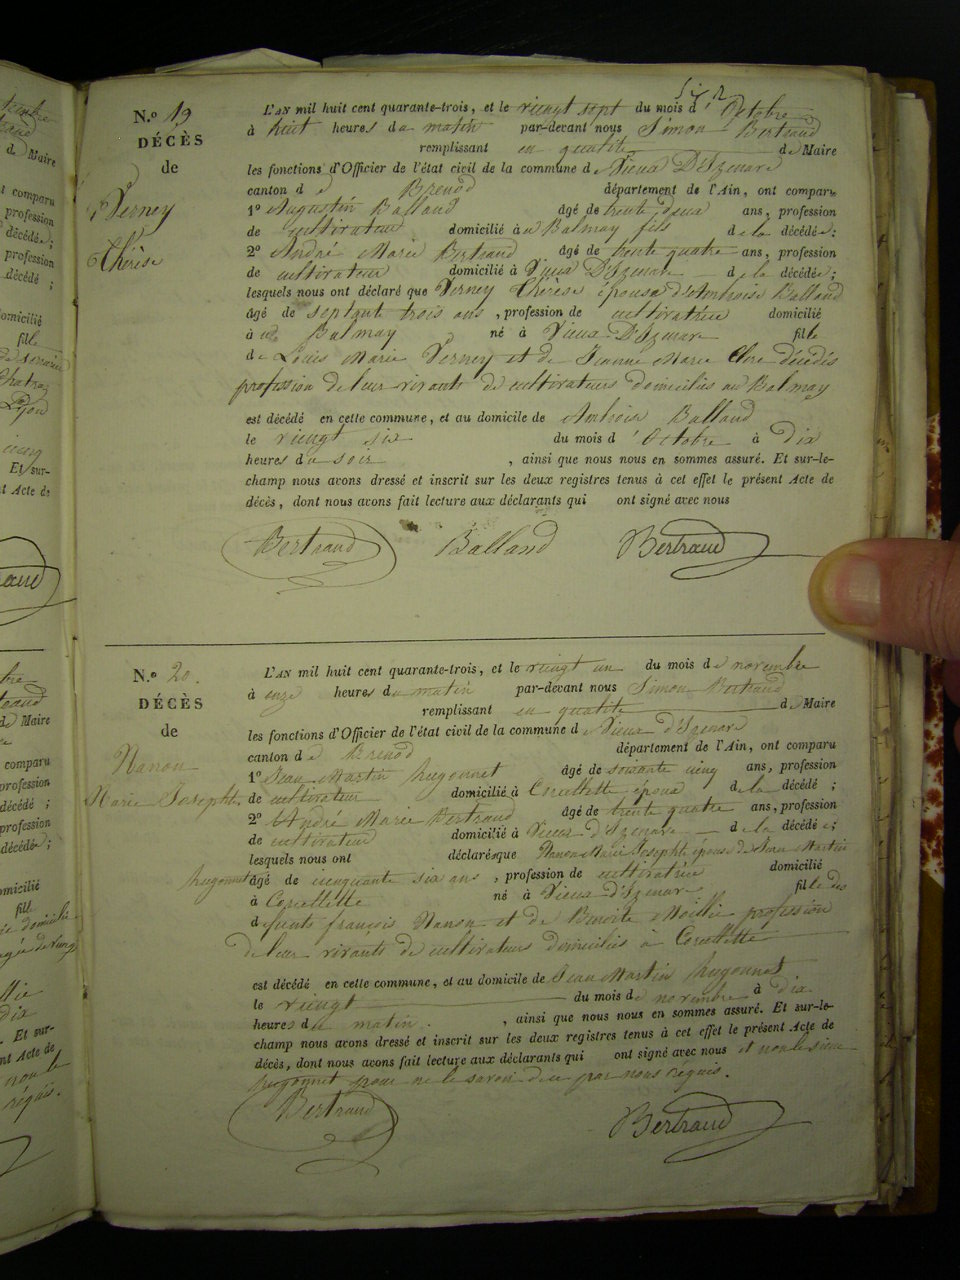 N.º 19
DÉCÈS
de
Verney
Thérèse
L'AN mil huit cent quarante-trois, et le vingt sept du mois d'Octobre
à huit heures du matin par-devant nous Simon Bertrand
remplissant en qualité de Maire
les fonctions d'Officier de l'état civil de la commune de Vieux D'Izenave
canton d e Brenod département de l'Ain, ont comparu
1º Augustin Balland âgé de trente deux ans, profession
de cultivateur domicilié à Balmay fils de la décédée;
2º André Marie Bertrand âgé de trente quatre ans, profession
de cultivateur domicilié à Vieux D'Izenave de la décédée;
lesquels nous ont déclaré que Verney Thérèse épouse d'Ambroise Balland
âgé de septante trois ans, profession de cultivatrice domicilié
à Balmay né à Vieux D'Izenave fille
de Louis Marie Verney et de Jeanne Marie décédés
profession de leur vivants de cultivateurs domiciliés au Balmay
est décédé en cette commune, et au domicile de Ambroise Balland
le vingt six du mois d'Octobre à Dix
heures du soir, ainsi que nous nous en sommes assuré. Et sur-le-
champ nous avons dressé et inscrit sur les deux registres tenus à cet effet le présent Acte de
décès, dont nous avons fait lecture aux déclarants qui ont signé avec nous
Bertrand Balland Bertrand
N.º 20.
DÉCÈS
de
Nanon
Marie Josephte
L'AN mil huit cent quarante-trois, et le vingt un du mois de novembre
à onze heures du matin par-devant nous Simon Bertrand
remplissant en qualité de Maire
les fonctions d'Officier de l'état civil de la commune d Vieux d'Izenave
canton d e Brenod département de l'Ain, ont comparu
1º Jean Martin hugonnet âgé de soixante cinq ans, profession
de cultivateur domicilié à Corcelette époux de la décédé;
2º André Marie Bertrand âgé de trente quatre ans, profession
de cultivateur domicilié à Vieux d'Izenave de la décédée;
lesquels nous ont déclaré que Nanon Marie Josephte épouse de Jean Martin
hugonnet âgé de cinquante six ans, profession de cultivatrice domicilié
à Corcelette né à Vieux d'Izenave fille des
défunts françois Nanon et de Benoite profession
de leur vivants de cultivateurs domiciliés à Corcelette
est décédé en cette commune, et au domicile de Jean Martin hugonnet
le vingt du mois de novembre à dix
heures du matin, ainsi que nous nous en sommes assuré. Et sur-le-
champ nous avons dressé et inscrit sur les deux registres tenus à cet effet le présent Acte de
décès, dont nous avons fait lecture aux déclarants qui ont signé avec nous et non le sieur
hugonnet pour ne le savoir de ce par nous requis.
Bertrand Bertrand